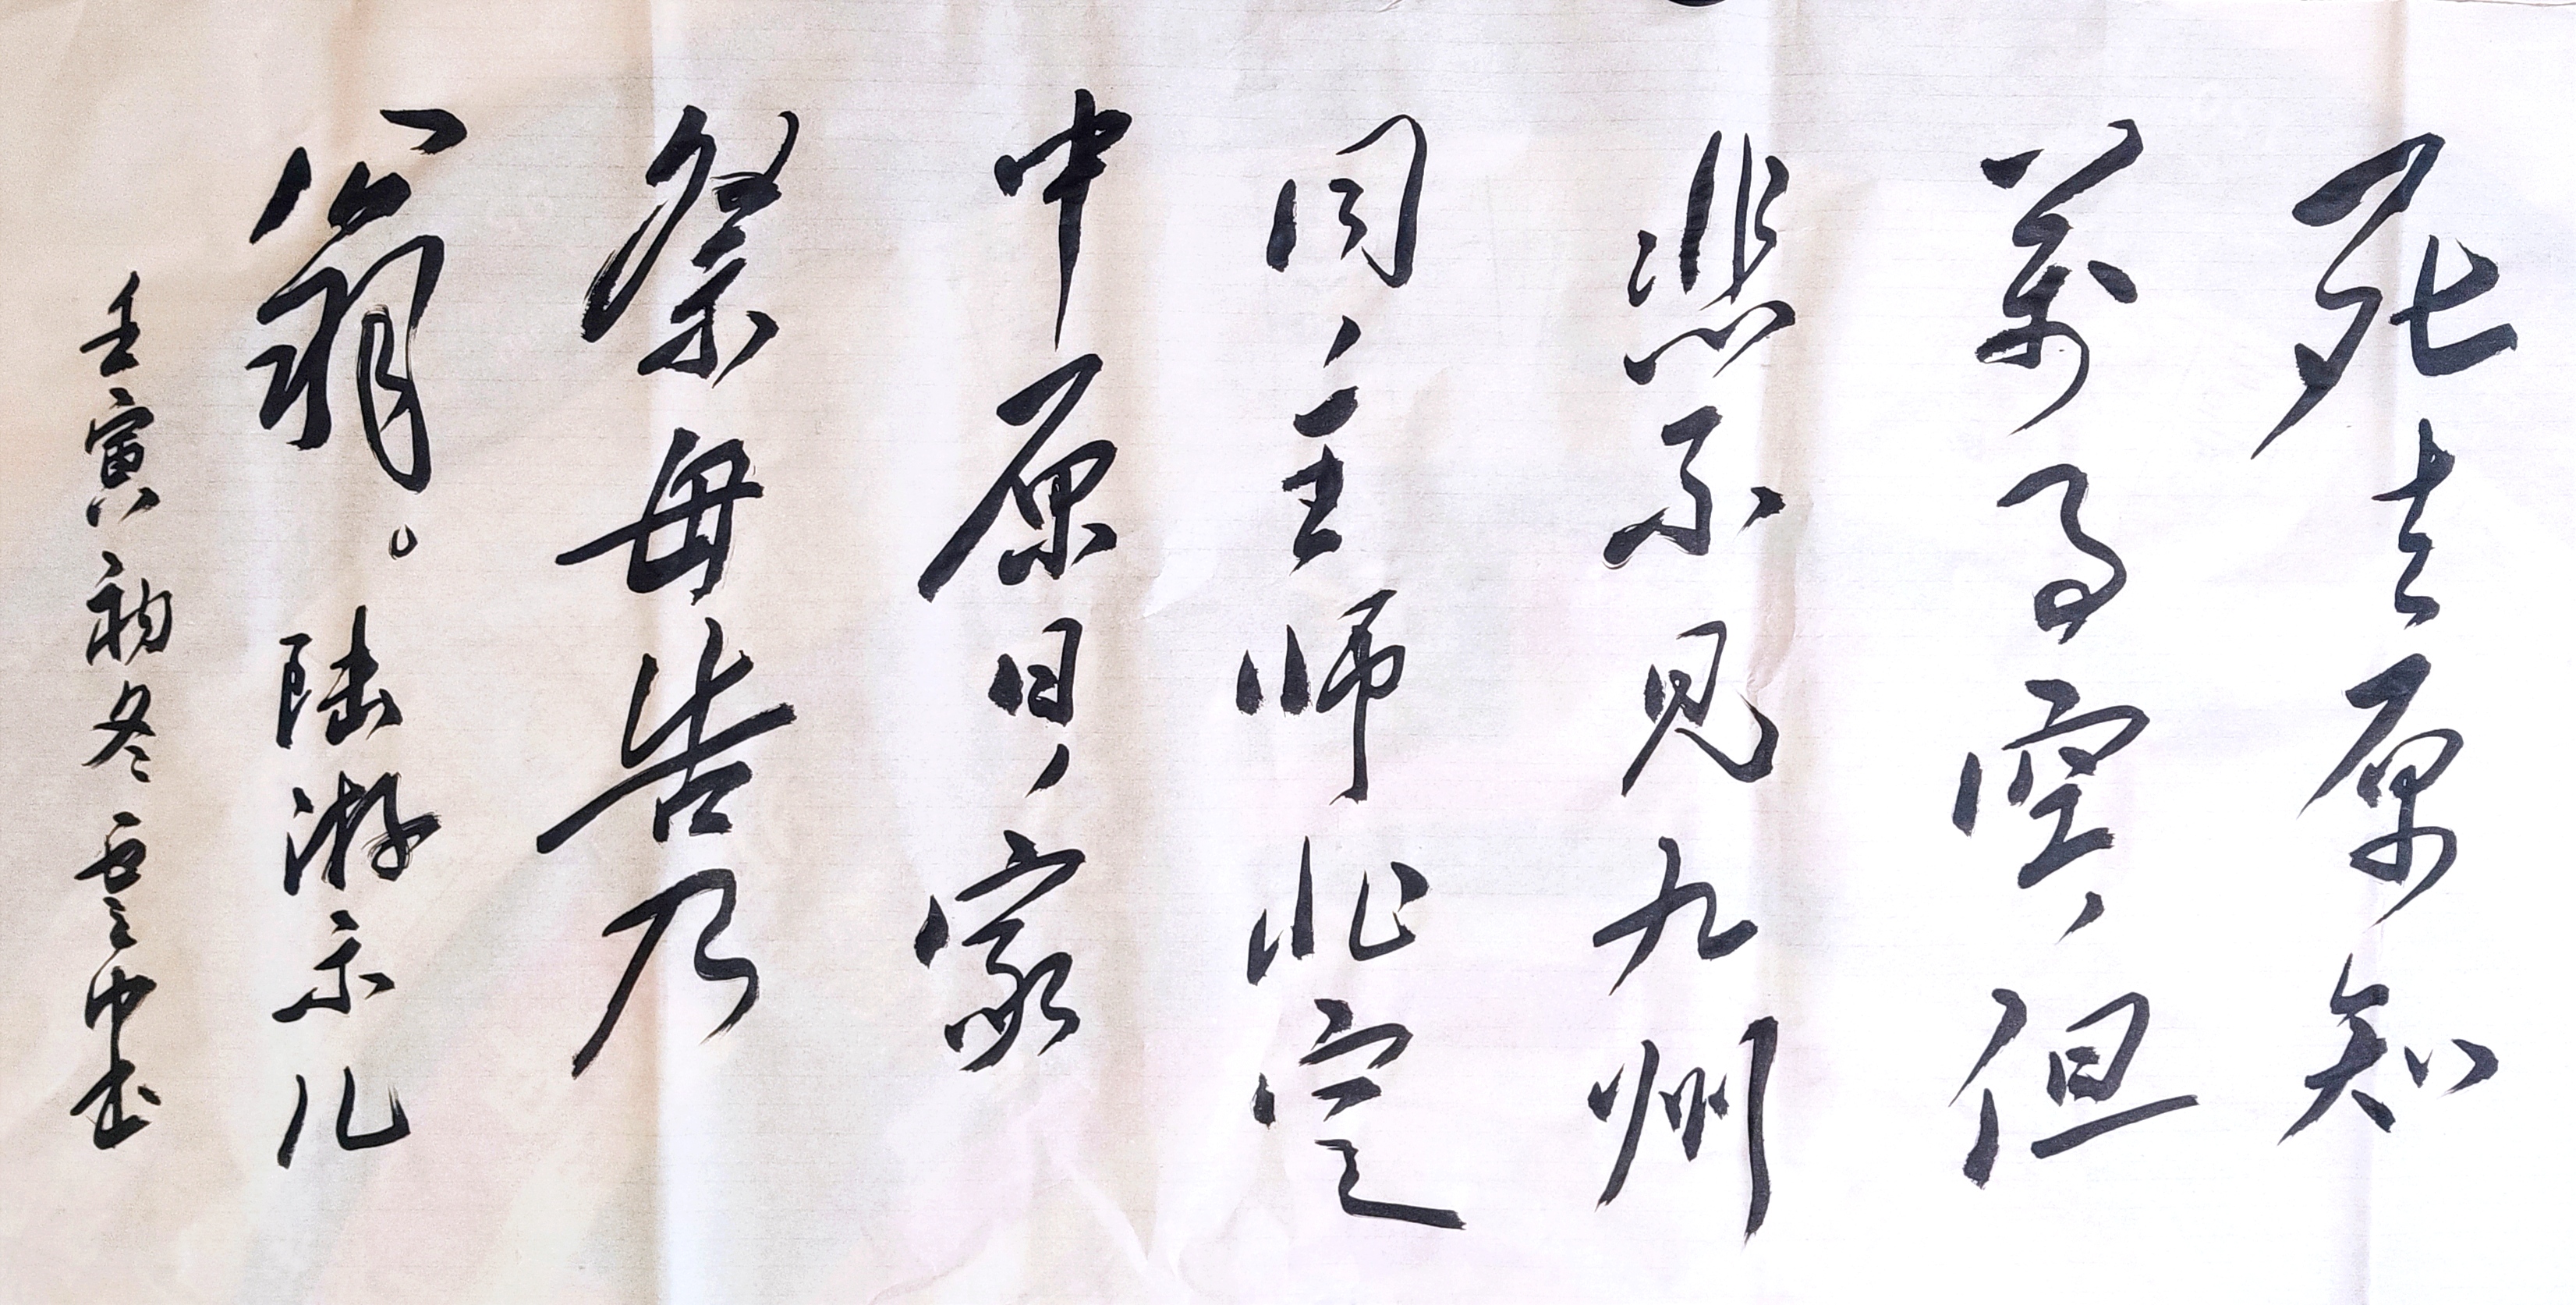 死去原知
萬事空，但
悲不见九州
同，王师北定
中原日，家
祭毋告乃
翁。陆游示儿
壬寅初冬 中书